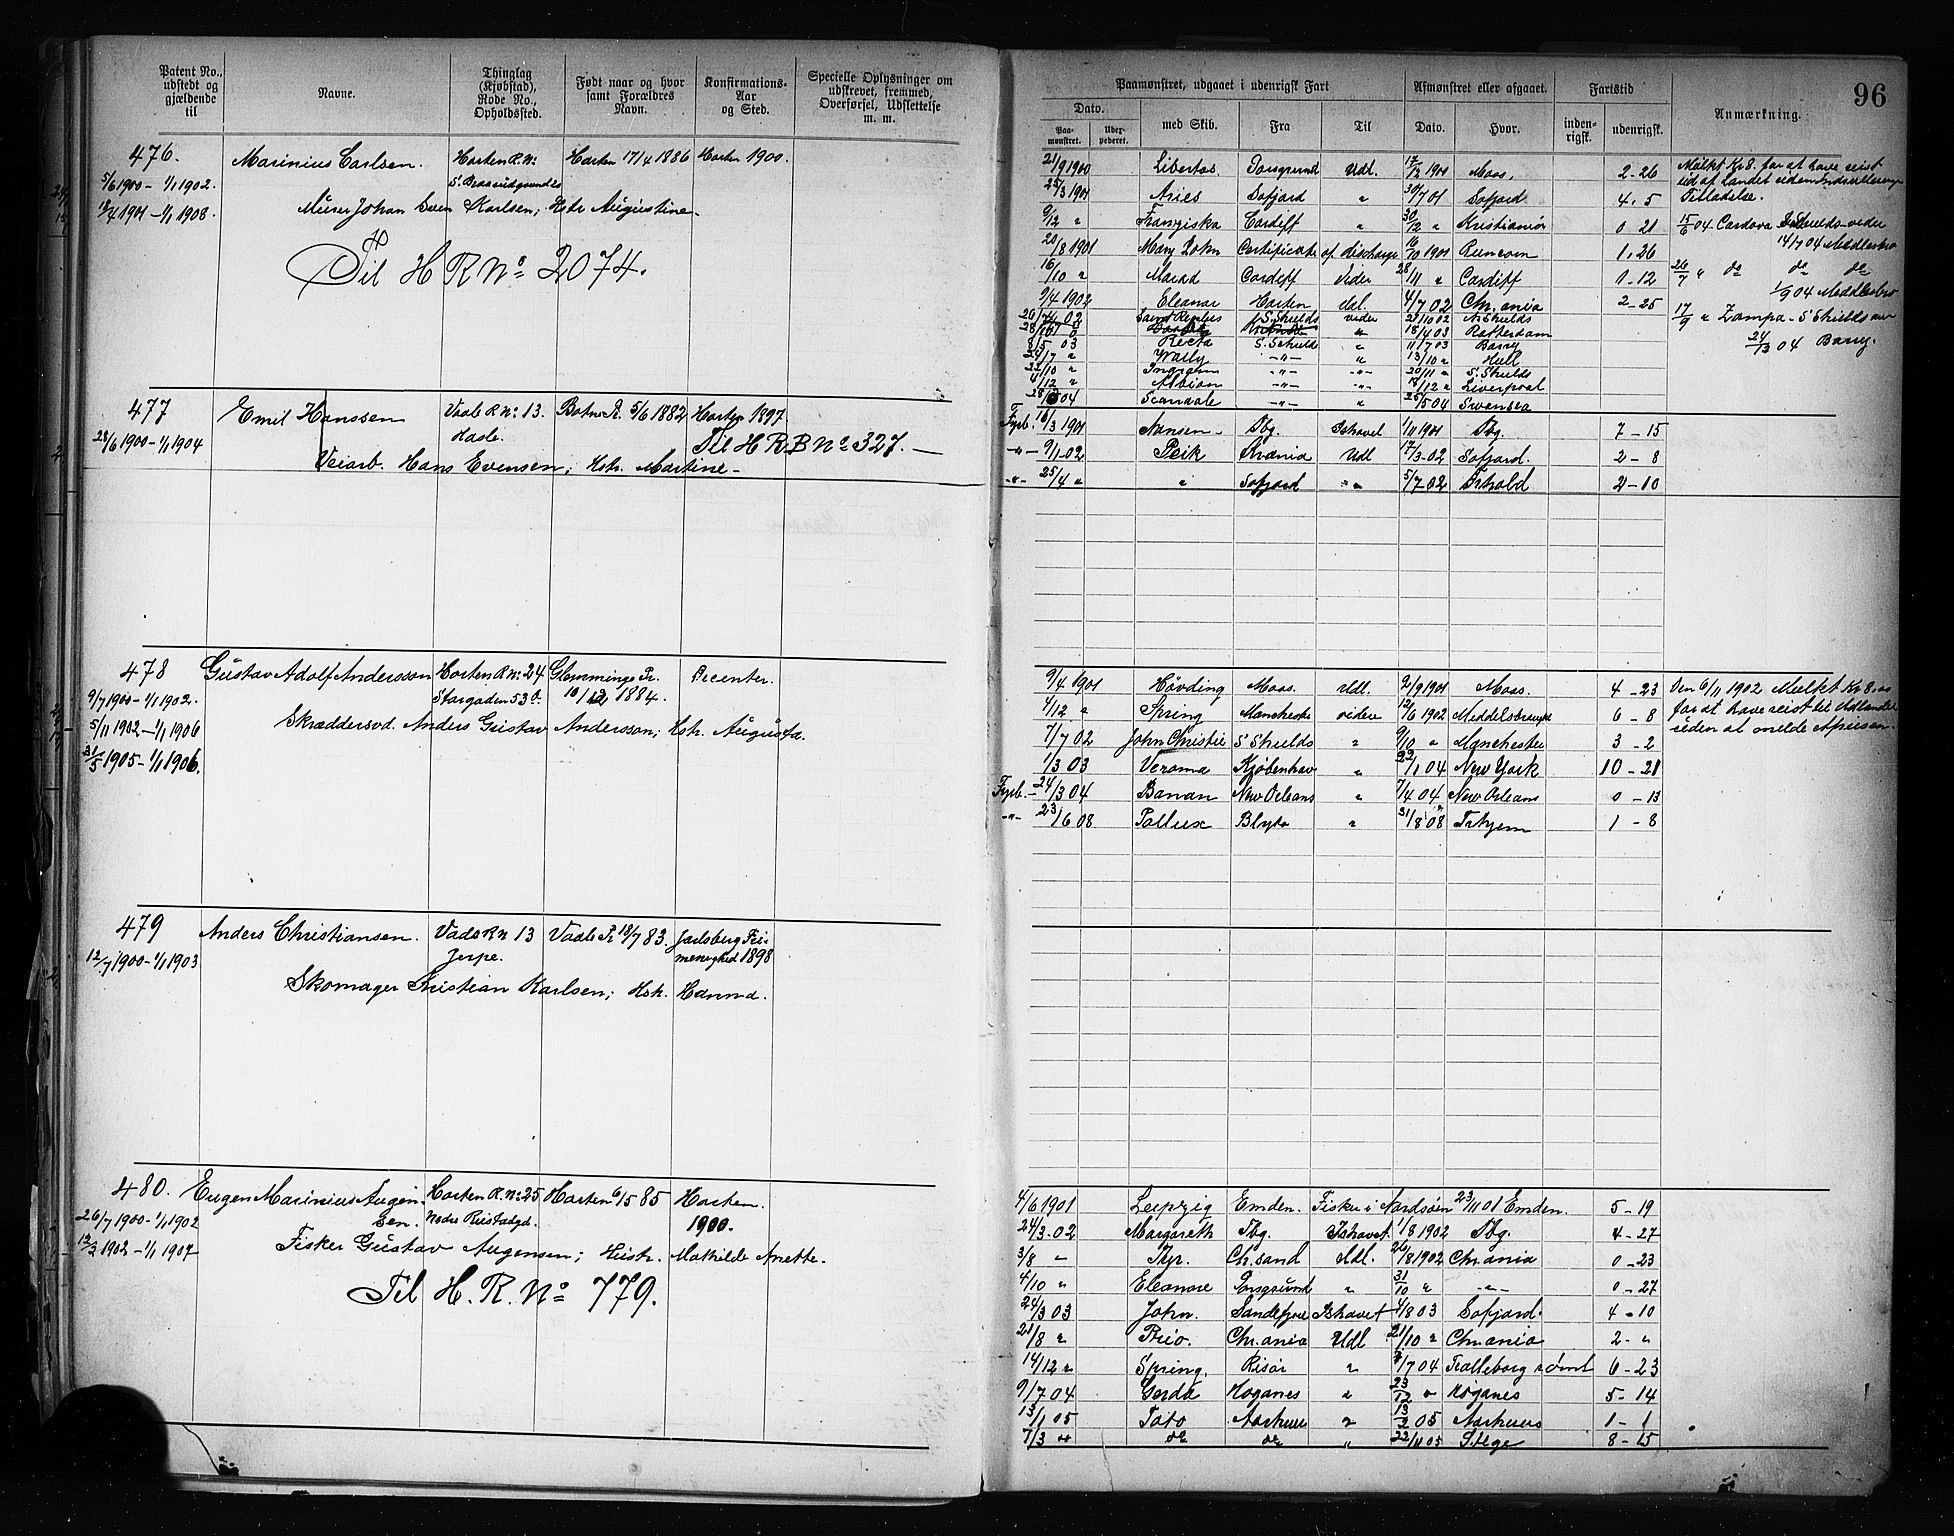 Patent No., udstedt og gjældende til
Navne.
Thinglag (Kjøbstad), Rode No., Opholdssted.
Født naar og hvor samt Forældres Navn.
Konfirmations-Aar og Sted.
Specielle Oplysninger om udskrevet, fremmed, Overførsel, Udslettelse m. m.
476. Marinius Carlsen. Horten R.N: Horten 17/4 1886 Horten 1900.
5/6 1900 - 1/1 1902.
18/4 1901 - 1/1 1908. Murer Johan Sven Karlsen; Hstr. Augustine.
Til H R No 2074.
477 Emil Hanssen Vaale R No: 13. Botne Pr. 5/6 1882 Horten 1897
28/6 1900 - 1/1 1904 Hasle. Til H R B No 327.
Veiarb. Hans Evensen; Hstr. Martine
478 Gustav Adolf Andersson Horten R No: 24 Glemminge Pr. Decenter.
9/7 1900 - 1/1 1902. Storgaden 53 10/12 1884.
5/11 1902 - 1/1 1906 Skræddersvd. Anders Gustav Andersson; Hstr. Augusta.
31/5 1905 - 1/1 1906.
479 Anders Christiansen. Vaale R No 13 Vaale Pr 18/7 83. Jarlsberg Fri-
12/7 1900 - 1/1 1903 Jerpe. menighed 1898
Skomager Kristian Karlsen; Hstr. Hanna.
480. Eugen Marinius Augen- Horten R. No: 25 Horten 6/5 85 Horten
26/7 1900 - 1/1 1902 sen. 1900.
12/3 1902 - 1/1 1907 Fisker Gustav Augensen; Hustr. Mathilde Anette.
Til H. R. No 779.
96
Paamønstret, udgaaet i udenrigsk Fart
Afmønstret eller afgaaet.
Fartstid
Anmærkning.
Dato.
Paa-mønstret.
med Skib.
Fra
Til
Dato.
Hvor.
inden-rigsk.
udenrigsk.
21/9 1900 Libertas. Porsgrund Udl. 17/2 1901 Moss. 2-26 Mulkt Kr 8. for at have reist
25/3 1901 Aries Sofjord " 30/7 01 Sofjord 4.5 Tilladelse.
9/12 " Franziska Cardiff " 30/12 " Kristiansør 0 21 15/6 04 Cordova S Shields - videre
20/8 1901 Mary Lohn Certificate of discharge 16/10 1901 Runcorn 1.26 14/7 04 Middlesbro
16/10 " Cardiff videre 28/11 " Cardiff 0-12 26/7 " do do do
1/9 04 Middlesbro
9/4 1902 Eleanor Horten Udl. 4/7 02 Chr.ania 2-25
17/9 " Zampa - S' Shields
S. Shields videre N. Shields
18/4 03 Rotterdam
8/5 03 Recta S. Shields " 11/7 03 Barry 04 Barry.
24/7 " Wally -"- " 13/10 " Hull
-"- 20/11 " S. Shields
4/12 " Albion -"- Liverpool
04 Scandale -"- " 25/5 04 Swansea
Fyrb. 16/3 1901 Nansen Tbg. Ishavet 1/11 1901 Tbg. 7-15
-"- 9/1-02 Peik Kr.ania Udl 17/3-02 Sofjord. 2-8
-"- 25/4 " " Sofjord -"- 5/7 02 Frhald 2-10
9/4 1901 Høvding Moss. Udl. 2/9 1901 Moss. 4-23 Den 6/11 1902 Mulkt Kr 8.00
4/12 " Spring Manchester videre 12/6 1902 6-8 for at have reist til Udlandet
7/7 02 John Christie S' Shields " 9/10 " Manchester 3-2 uden at melde
1/3 03 Verona Kjøbenhav " 22/1 04 New York 10-21
Fyrb. 24/3 04 Banan New Orleans " 7/4 04 New Orleans 0-13
-"- 23/6 08 Pollux Blyth " 31/8 08 Trhjem 1-8
4/6 1901 Leipzig Emden. Fisker i Nordsøen 23/11 01 Emden. 5-19
24/3 02 Margareth Tbg. Ishavet 1/8 1902 Tbg. 4-27
3/8 - Tyr. Ch.sand Udl. 26/8 1902 Ch.ania 0-23
4/10 " Eleanore Porsgrund " 31/10 " -"- 0-27
24/3 03 John. Sandefjord Ishavet 4/8 03 Sofjord. 4-10
21/8 " Prio. Chr.ania Udl. 21/10 " Chr.ania 2-"
14/12 " Spring. Risør " 7/7 04 Tralleborg rømt 6-23
9/7 04 Gerda Høganes " 23/12 " Høganes 5-14
13/1 05 Toto Aarhuus " 13/2 05 Aarhuus 1-1
7/3 " do do " 22/11 05 Stege 8-15